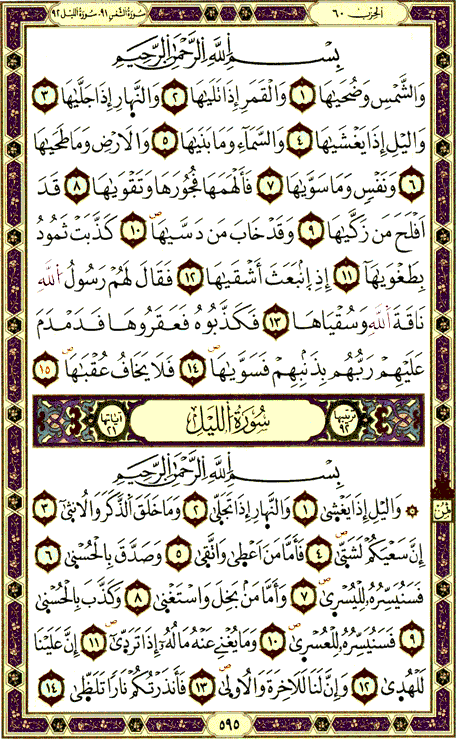 الحزب ٦٠
سورة الشمس ٩١، سورة الليل ٩٢
بِسْمِ اللَّهِ الرَّحْمَٰنِ الرَّحِيمِ
وَالشَّمْسِ وَضُحَيٰهَا ١ وَالْقَمَرِ إِذَا تَلَيٰهَا ٢ وَالنَّهَارِ إِذَا جَلَّيٰهَا ٣
وَالَيْلِ إِذَا يَغْشَيٰهَا ٤ وَالسَّمَآءِ وَمَا بَنَيٰهَا ٥ وَالَارْضِ وَمَا طَحَيٰهَا
٦ وَنَفْسٍ وَمَا سَوَّيٰهَا ٧ فَأَلْهَمَهَا فُجُورَهَا وَتَقْوَيٰهَا ٨ قَدَ
اَفْلَحَ مَن زَكَّيٰهَا ٩ وَقَدْ خَابَ مَن دَسَّيٰهَا ١٠ كَذَّبَتْ ثَمُودُ
بِطَغْوَيٰهَآ ١١ إِذِ اِنۢبَعَثَ أَشْقَيٰهَا ١٢ فَقَالَ لَهُمْ رَسُولُ اللَّهِ
نَاقَةَ اللَّهِ وَسُقْيَاهَا ١٣ فَكَذَّبُوهُ فَعَقَرُوهَا فَدَمْدَمَ
عَلَيْهِمْ رَبُّهُم بِذَنۢبِهِمْ فَسَوَّيٰهَا ١٤ فَلَا يَخَافُ عُقْبَٰهَا ١٥
ترتيبها ٩٢ سُورَةُ الليْلِ آياتها ٢١
بِسْمِ اللَّهِ الرَّحْمَٰنِ الرَّحِيمِ
وَالَيْلِ إِذَا يَغْشَىٰ ١ وَالنَّهَارِ إِذَا تَجَلَّىٰ ٢ وَمَا خَلَقَ الذَّكَرَ وَالُانثَىٰٓ ٣
إِنَّ سَعْيَكُمْ لَشَتَّىٰ ٤ فَأَمَّا مَنَ اَعْطَىٰ وَاتَّقَىٰ ٥ وَصَدَّقَ بِالْحُسْنَىٰ ٦
فَسَنُيَسِّرُهُۥ لِلْيُسْرَىٰ ٧ وَأَمَّا مَنۢ بَخِلَ وَاسْتَغْنَىٰ ٨ وَكَذَّبَ بِالْحُسْنَىٰ
٩ فَسَنُيَسِّرُهُۥ لِلْعُسْرَىٰ ١٠ وَمَا يُغْنِى عَنْهُ مَالُهُۥٓ إِذَا تَرَدَّىٰٓ ١١ إِنَّ عَلَيْنَا
لَلْهُدَىٰ ١٢ وَإِنَّ لَنَا لَلَاخِرَةَ وَالُاولَىٰ ١٣ فَأَنذَرْتُكُمْ نَارًا تَلَظَّىٰ ١٤
ثمن
٥٩٥